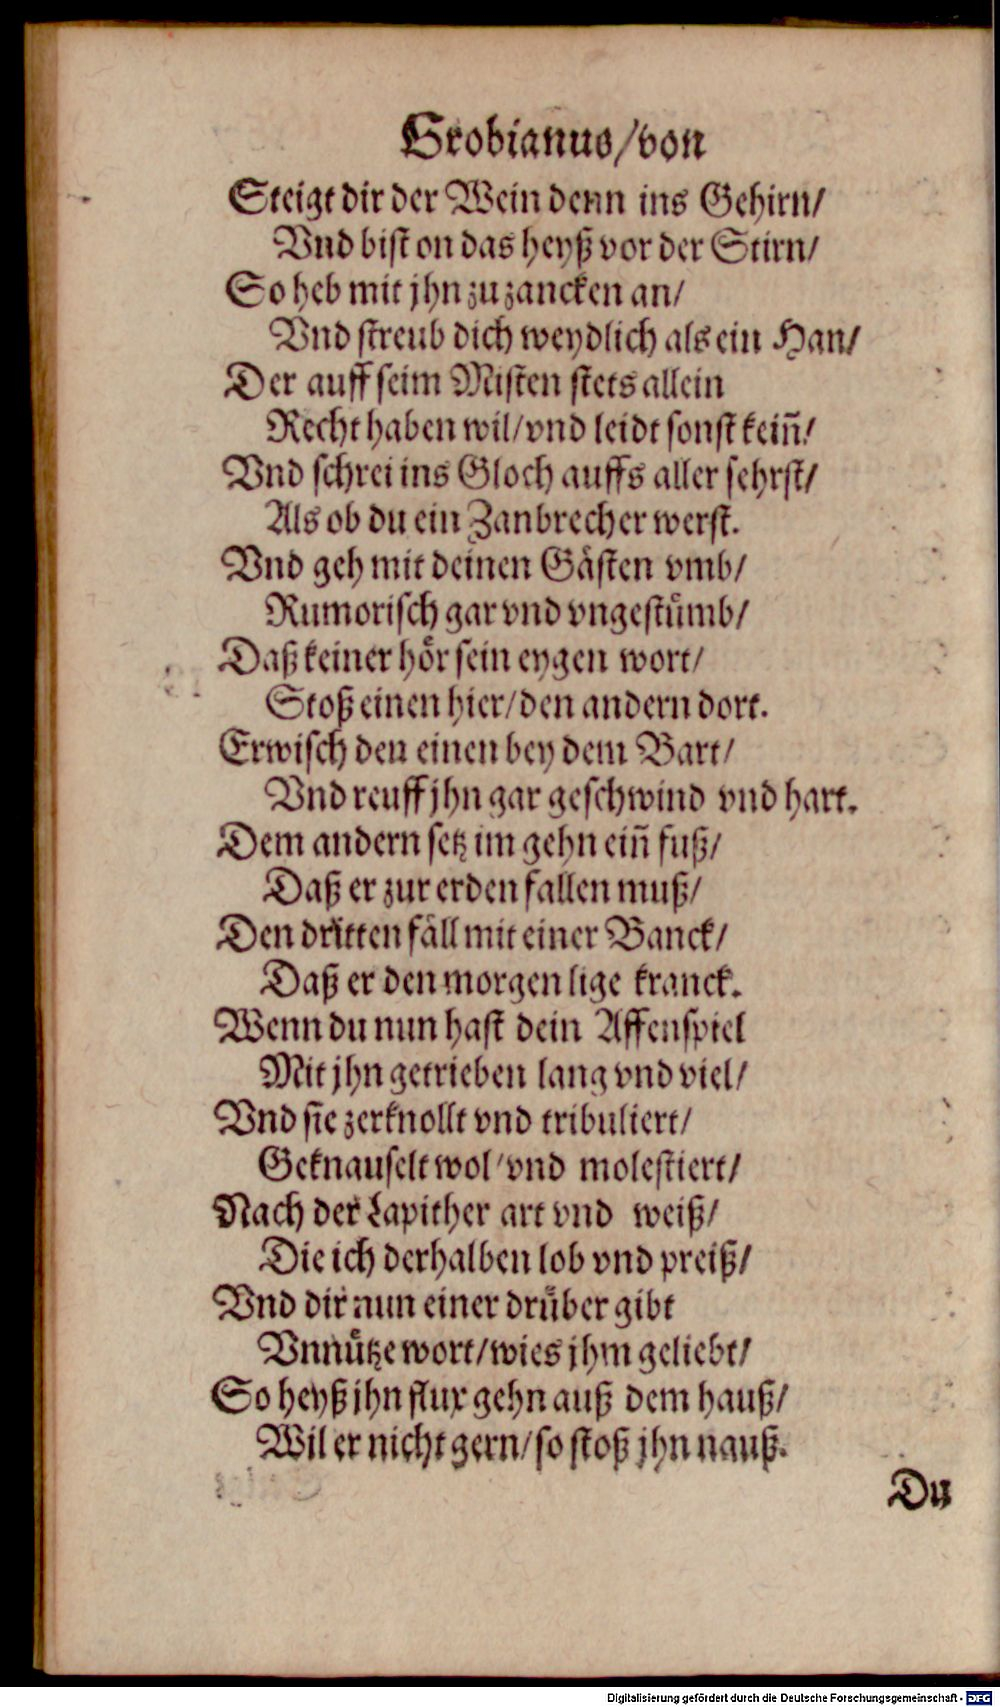 Grobianus/von
Steigt dir der Wein denn ins Gehirn/
Vnd bist on das heyß vor der Stirn/
So heb mit jhn zu zancken an/
Vnd streub dich weydlich als ein Han/
Der auff seim Misten stets allein
Recht haben wil/vnd leidt sonst kein̄/
Vnd schrei ins Gloch auffs aller sehrst/
Als ob du ein Zanbrecher werst.
Vnd geh mit deinen Gästen vmb/
Rumorisch gar vnd vngestümb/
Daß keiner hör sein eygen wort/
Stoß einen hier/den andern dort.
Erwisch den einen bey dem Bart/
Vnd reuff jhn gar geschwind vnd hart.
Dem andern setz im gehn ein̄ fuß/
Daß er zur erden fallen muß/
Den dritten fäll mit einer Banck/
Daß er den morgen lige kranck.
Wenn du nun hast dein Affenspiel
Mit jhn getrieben lang vnd viel/
Vnd sie zerknollt vnd tribuliert/
Geknauselt wol/vnd molestiert/
Nach der Lapither art vnd weiß/
Die ich derhalben lob vnd preiß/
Vnd dir nun einer drüber gibt
Vnnütze wort/wies jhm geliebt/
So heyß jhn flux gehn auß dem hauß/
Wil er nicht gern/so stoß jhn nauß.
Du
Digitalisierung gefördert durch die Deutsche Forschungsgemeinschaft - DFG